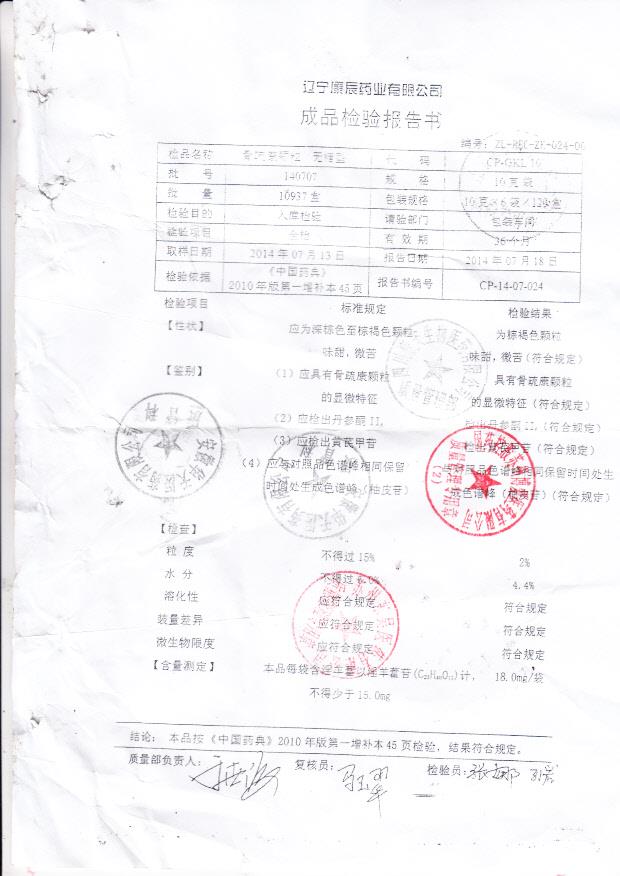 辽宁康辰药业有限公司
成品检验报告书
编号: ZL-REC-ZK-024-00
检品名称 骨疏康颗粒 无糖型 代 码 CP-GKL 10
批 号 140707 规 格 10克/袋
批 量 10937盒 包装规格 10克×6袋×120盒
检验目的 入库检验 请验部门 包装车间
检验项目 全检 有 效 期 36个月
取样日期 2014年07月13日 报告日期 2014年07月18日
检验依据 《中国药典》2010年版第一增补本45页 报告书编号 CP-14-07-024
检验项目 标准规定 检验结果
【性状】 应为深棕色至棕褐色颗粒; 为棕褐色颗粒
味甜,微苦 味甜,微苦(符合规定)
【鉴别】 (1)应具有骨疏康颗粒 具有骨疏康颗粒
的显微特征 的显微特征(符合规定)
(2)应检出丹参酮II, 检出丹参酮II,(符合规定)
(3)应检出黄芪甲苷 检出黄芪甲苷(符合规定)
(4)应与对照品色谱峰相同保留 与对照品色谱峰相同保留时间处生
时间处生成色谱峰(柚皮苷) 成色谱峰(柚皮苷)(符合规定)
【检查】
粒 度 不得过15% 2%
水 分 不得过6.0% 4.4%
溶化性 应符合规定 符合规定
装量差异 应符合规定 符合规定
微生物限度 应符合规定 符合规定
【含量测定】 本品每袋含淫羊藿以淫羊藿苷(C₃₃H₄₀O₁₅)计, 18.0mg/袋
不得少于15.0mg
结论: 本品按《中国药典》2010年版第一增补本45页检验,结果符合规定。
质量部负责人: 复核员: 检验员:张娜